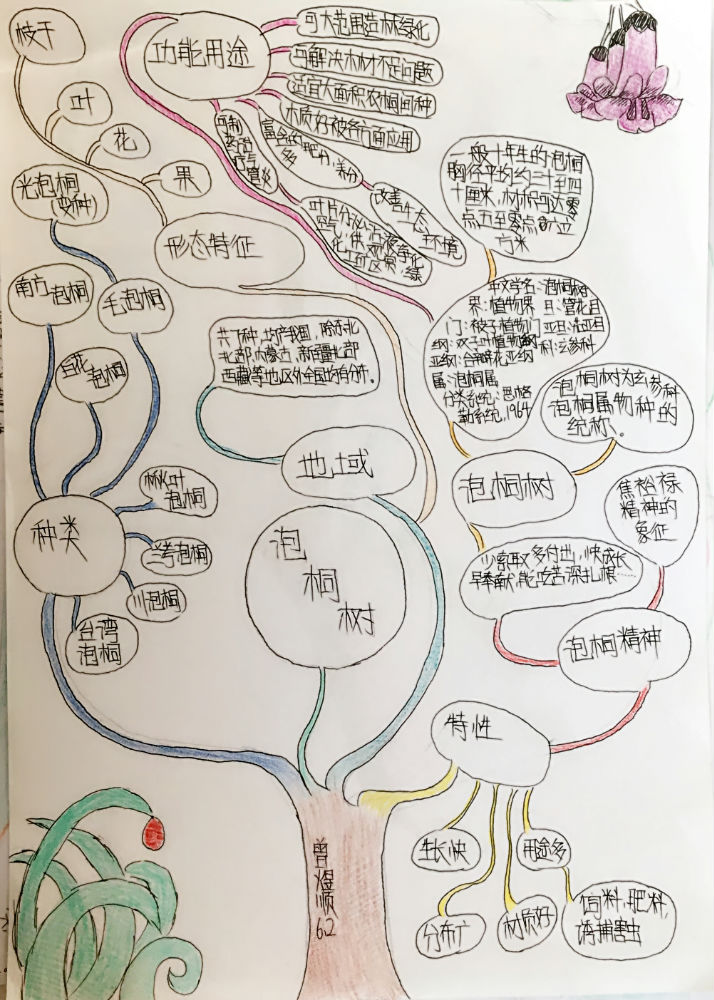 枝干
叶
花
果
形态特征
功能用途
可大范围造林绿化
可解决木材不足问题
适宜大面积农桐间种
木质好被各方面应用
富含的肥分,养分
多
改善生态
环境
一般十年生的泡桐
胸径平均约三十到四
十厘米,材积可达零
点五至零点
立
方米
光泡桐
(变种)
南方泡桐
毛泡桐
白花
泡桐
楸叶
泡桐
兰考泡桐
川泡桐
台湾
泡桐
种类
共7种,均产我国,除东北
北部,内蒙古,新疆北部
西藏等地区外全国均有分布。
地域
泡
桐
树
中文学名:泡桐树
界:植物界 目:管花目
门:被子植物门
纲:双子叶植物纲 科:玄参科
属:泡桐属
分类系统:恩格
勒系统,1964
泡桐树为玄参科
泡桐属物种的
统称。
泡桐树
焦裕禄
精神的
象征
少索取多付出,快成长
早奉献,能吃苦深扎根……
泡桐精神
特性
生长快
分布广
材质好
用途多
饲料,肥料,
诱捕害虫
曾煜顺
62